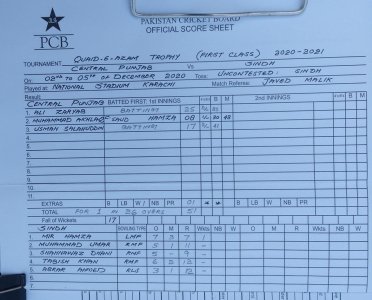 PCB
PAKISTAN CRICKET BOARD
OFFICIAL SCORE SHEET
TOURNAMENT QUAID-E-AZAM TROPHY (FIRST CLASS) 2020-2021
CENTRAL PUNJAB Vs SINDH
On: 02ND TO 05TH OF DECEMBER 2020 Toss: UNCONTESTED: SINDH
Played at: NATIONAL STADIUM KARACHI Match Referee: JAVED MALIK
Result
CENTRAL PUNJAB BATTED FIRST: 1st INNINGS B M 2nd INNINGS B M
1 ALI ZARYAB BATTING 25
2 MUHAMMAD AKHLAQ SAUD HAMZA 08 30 48
3 USMAN SALAHUDDIN BATTING 17 41
4
5
6
7
8
9
10
11
EXTRAS B LB W NB PR 01 B LB W NB PR
TOTAL FOR 1 IN 26 OVERS 51
Fall of Wickets 17
SINDH BOWLING TYPE O M R Wkts NB W O M R Wkts NB W
1 MIR HAMZA LMF 7 3 7 1
2 MUHAMMAD UMAR RMF 5 1 11 -
3 SHAHNAWAZ DHANI RMF 5 - 9 -
4 TABISH KHAN RMF 6 12 -
5 ABRAR AHMED RLS 3 1 12 -
6